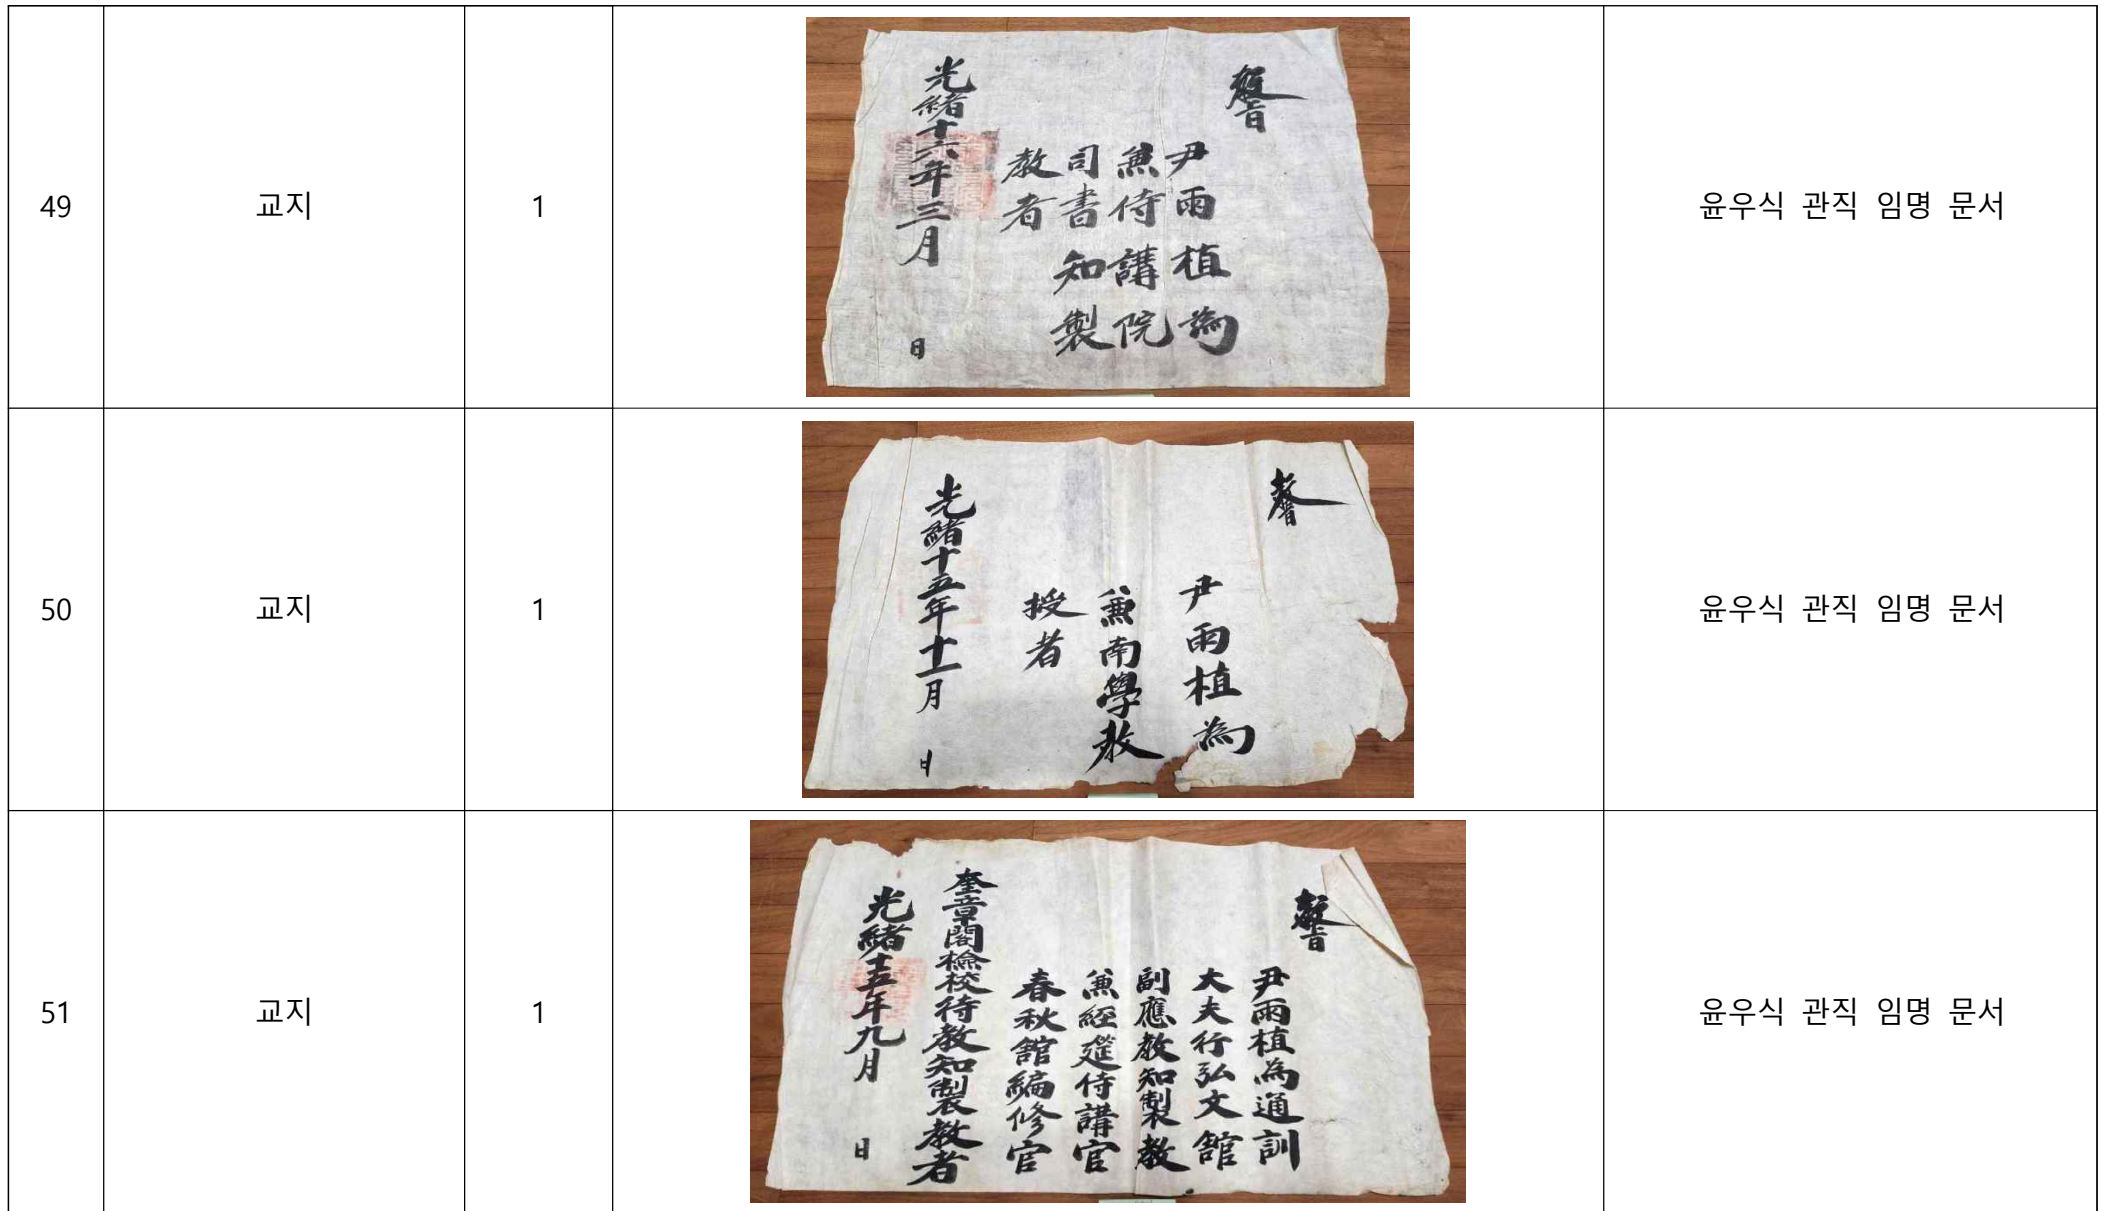 49
교지
1
敎旨
尹雨植爲
兼侍講院
司書知製
敎者
光緖十六年三月 日
윤우식 관직 임명 문서
50
교지
1
敎旨
尹雨植爲
兼南學敎
授者
光緖十五年十一月 日
윤우식 관직 임명 문서
51
교지
1
敎旨
尹雨植爲通訓
大夫行弘文館
副應敎知製敎
兼經筵侍講官
春秋館編修官
奎章閣檢校待敎知製敎者
光緖十五年九月 日
윤우식 관직 임명 문서